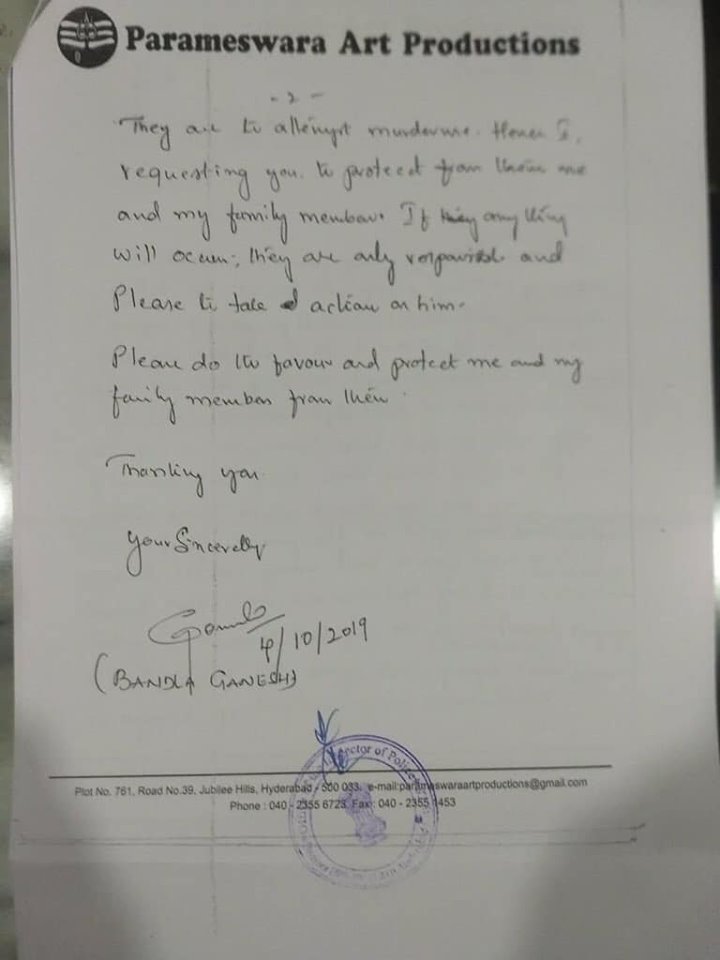 Parameswara Art Productions
- 2 -
They are to attempt murder me. Hence I,
requesting you to protect from them me
and my family members If any thing
will occur; they are only responsible and
Please to take action on him.
Please do the favour and protect me and my
family member from them.
Thanking you
Your Sincerely
4/10/2019
(BANDLA GANESH)
Plot No. 761, Road No.39, Jubilee Hills, Hyderabad - 500 033. e-mail:parameswaraartproductions@gmail.com
Phone : 040 - 2355 6723, Fax : 040 - 2355 1453
ector of Police